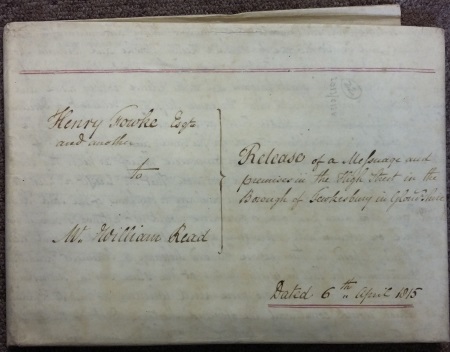 Henry Fowke Esqr.
and another
to
Mr. William Read
Release of a Messuage and
premises in the High Street in the
Borough of Tewkesbury in Glouc'shire
Dated 6th April 1815